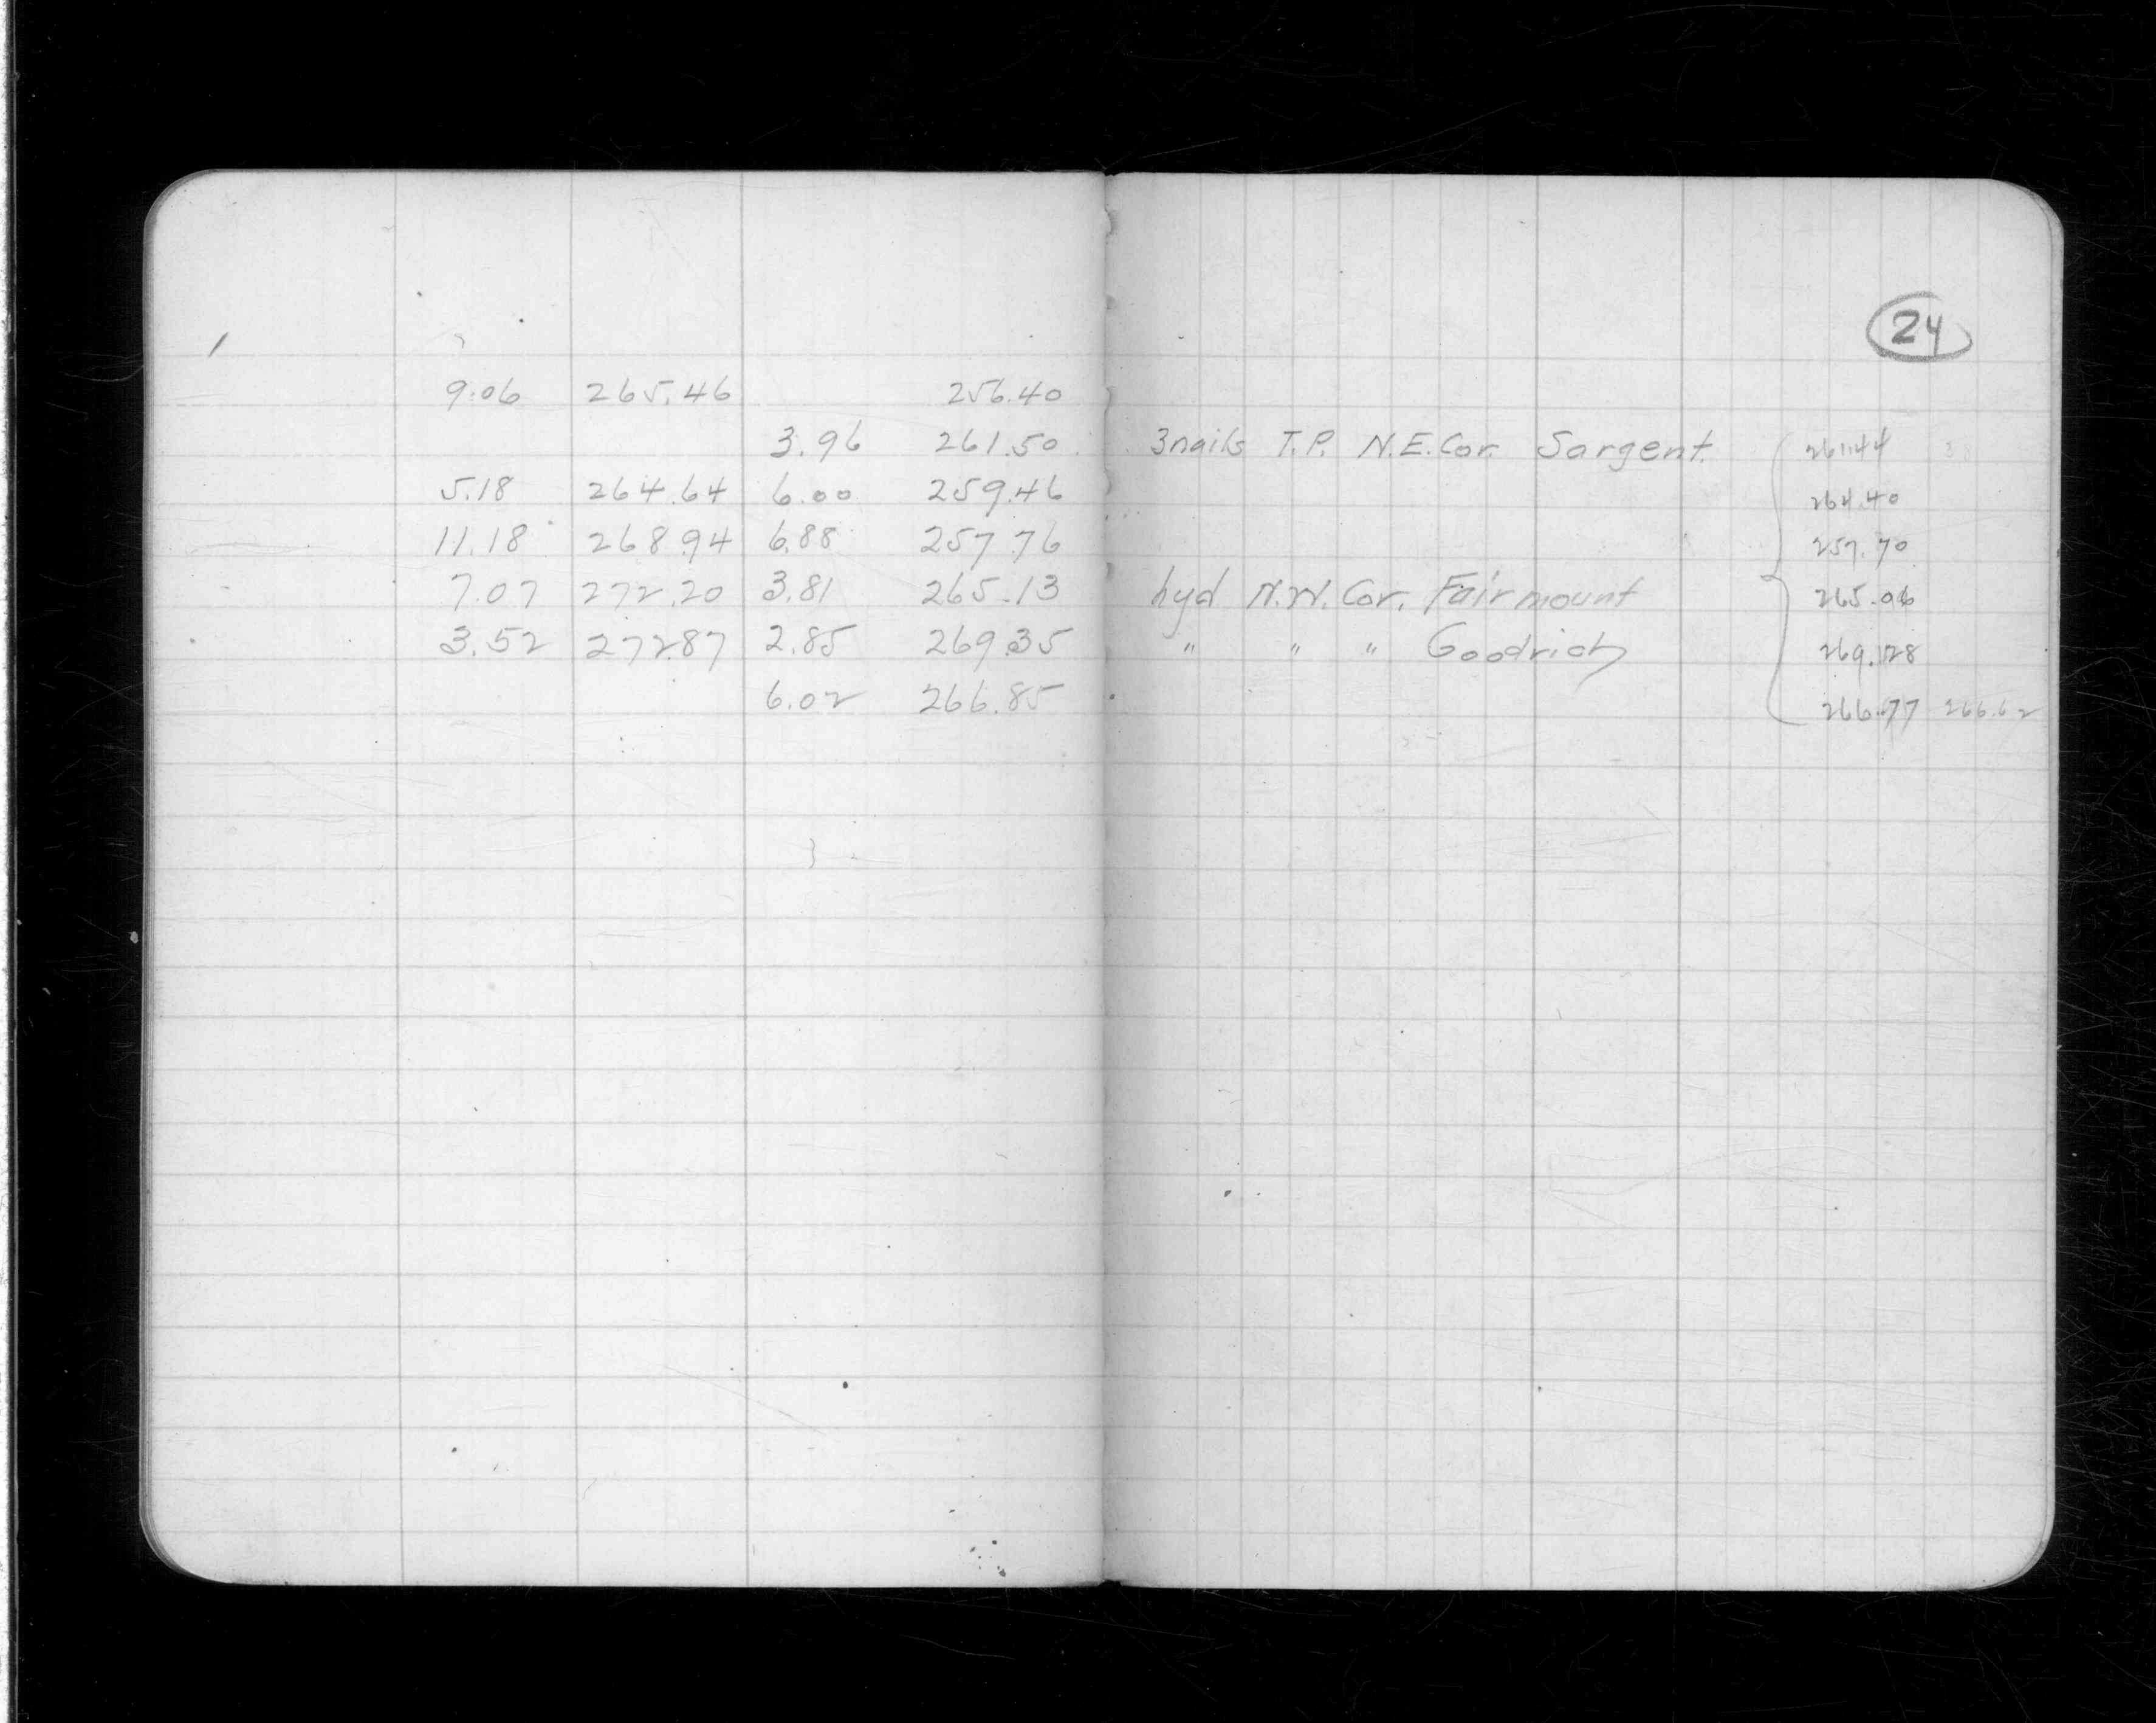 24
9.06 265.46 256.40
3.96 261.50 3nails T.P. N.E.Cor. Sargent. 261.44
5.18 264.64 6.00 259.46 264.40
11.18 268.94 6.88 257.76 257.70
7.07 272.20 3.81 265.13 hyd N.W. Cor. Fairmount 265.06
3.52 272.87 2.85 269.35 " " " Goodrich 269.28
6.02 266.85 266.77 266.62